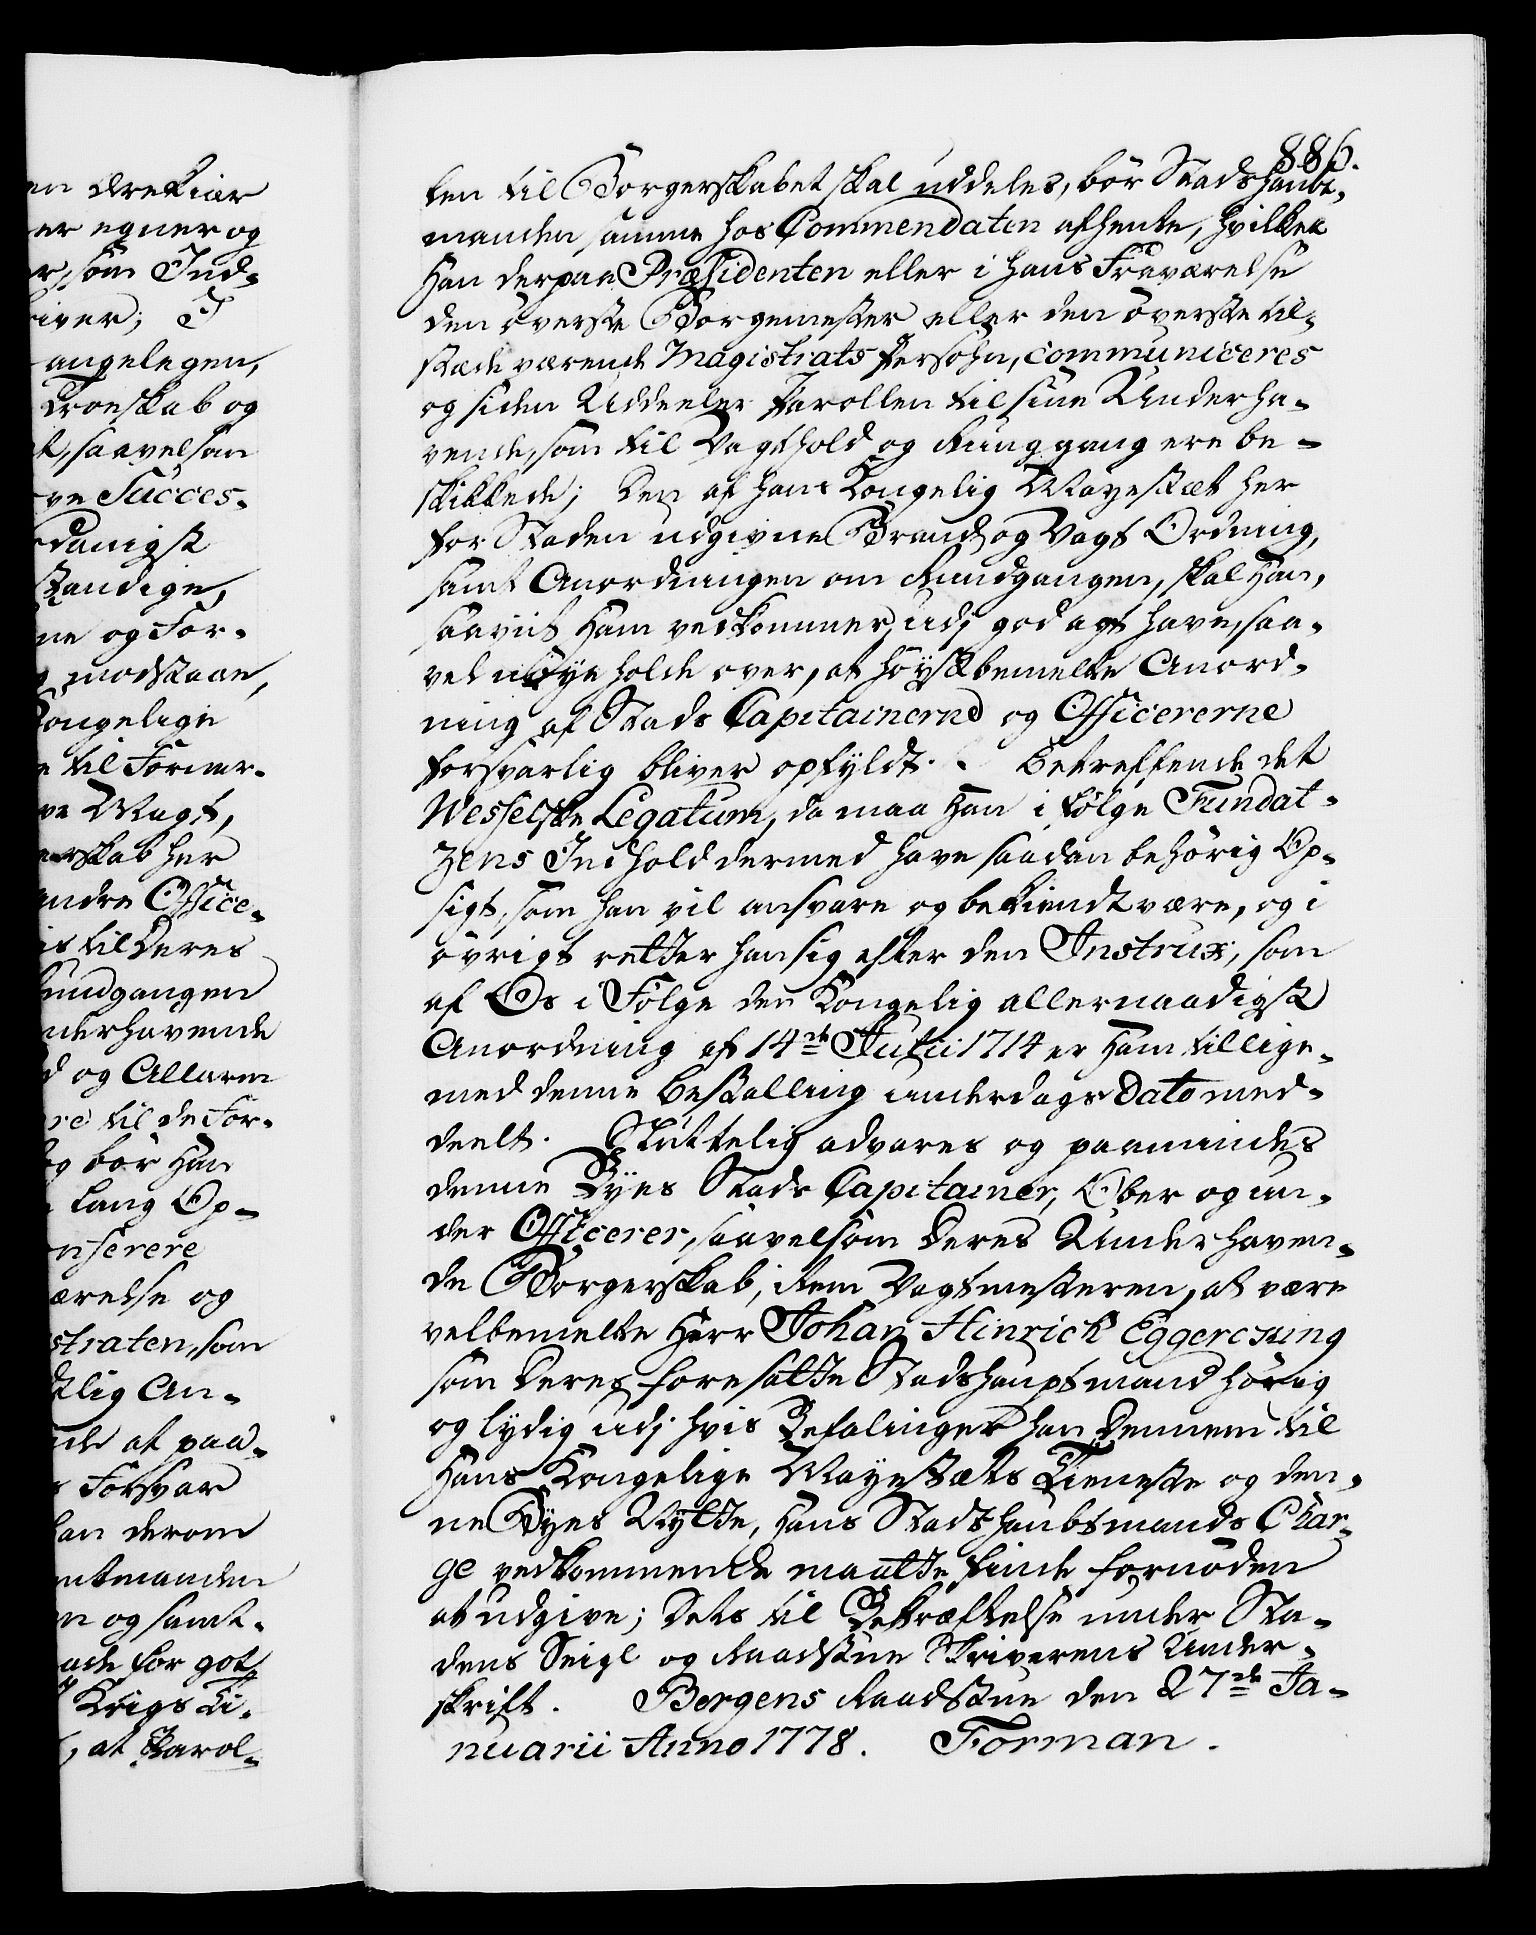 en drektiar
er egner og
r, som Ind-
iver; I
angelegen,
droeskab og
t, saavelsom
ve Succes-
danigst
standige,
ne og For-
modstaae,
Kongelige
e til Former-
ve Magt,
erskab her
andre Office-
is til Deres
undgangen
nderhavende
d og Allarm
re til de For-
og bør Han
lang Op-
nferere
ærelse og
straten, som
tlig An-
de at paa-
s Forsvar
han derom
ntmanden
n og samt-
ade for got
Krigs Ti-
, at Parol-
886.
len til Borgerskabet skal uddeles, bör Stadshaubt-
manden samme hos Commendaten afhente, hvilket
Han derpaa Præsidenten eller i hans Fraværelse
den överste Borgemester eller den överste til-
stædeværende Magistrats Persohn, communiceres
og siden Uddeeler Parollen til sine Underha-
vende, som til Vagthold og Runggang ere be-
skikkede; Den af Hans Kongelig Mayestæt her
for Staden udgivne Brand og Vagt Ordning,
samt Anordningen om Rundgangen, skal Han,
saavit Ham vedkommer, udj god agt have, saa-
vel nöye holde over, at höystbemelte Anord-
ning af Stads Capitainerne og Officererne
forsvarlig bliver opfyldt. Betreffende det
Wesselske Legatum, da maa Han i fölge Fundat-
zens Indhold dermed have saadan behörig Op-
sigt, som han vil ansvare og bekiendt være, og i
övrigt retter han sig efter den Instrux, som
af Os i Fölge den Kongelig allernaadigst
Anordning af 14de Julii 1714 er Ham tillige-
med denne Bestalling underdags Dato med-
deelt. Sluttelig advares og paamindes
denne Byes Stads Capitainer, Ober og un-
der Officerer, saavelsom Deres Underhaven-
de Borgerskab, item Vagtmesteren, at være
velbemelte Herr Johan Hinrich Eggerking
som Deres foresatte Stadshauptmand hörig
og lydig udj hvis Befalinger han Dennem til
Hans Kongelige Mayestæts Tieneste og den-
ne Byes Nytte, Hans Stadshaubtmands Char-
ge vedkommende maatte finde fornöden
at udgive; Dets til Bekræftelse under Sta-
dens Seigl og Raadstue Skriverens Under-
skrift. Bergens Raadstue den 27de Ja-
nuarii Anno 1778. Forman.